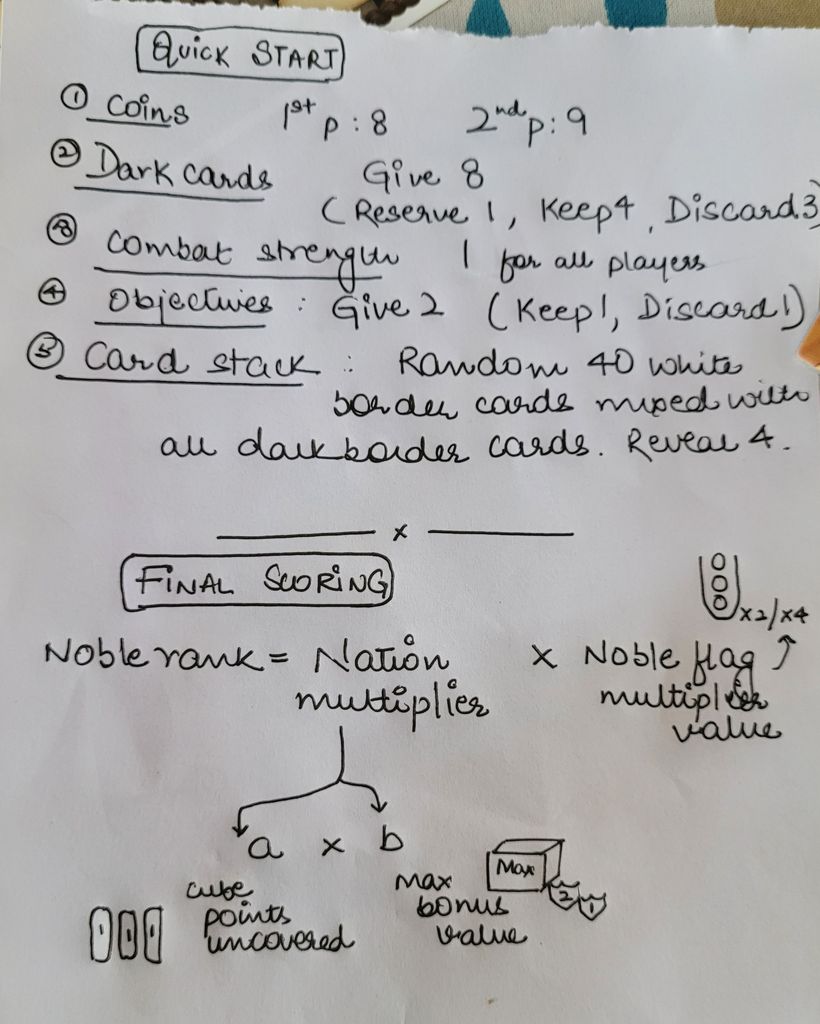 Quick START
① Coins 1st p : 8 2nd p : 9
② Dark cards Give 8
(Reserve 1, Keep 4, Discard 3)
③ Combat strength 1 for all players
④ Objectives : Give 2 (Keep 1, Discard 1)
⑤ Card stack : Random 40 white
border cards mixed with
all dark border cards. Reveal 4.
x
FINAL SCORING
x2/x4
Noble rank = Nation x Noble flag
multiplier multiplier
value
a x b
Max
2 1
cube max
points bonus
uncovered value